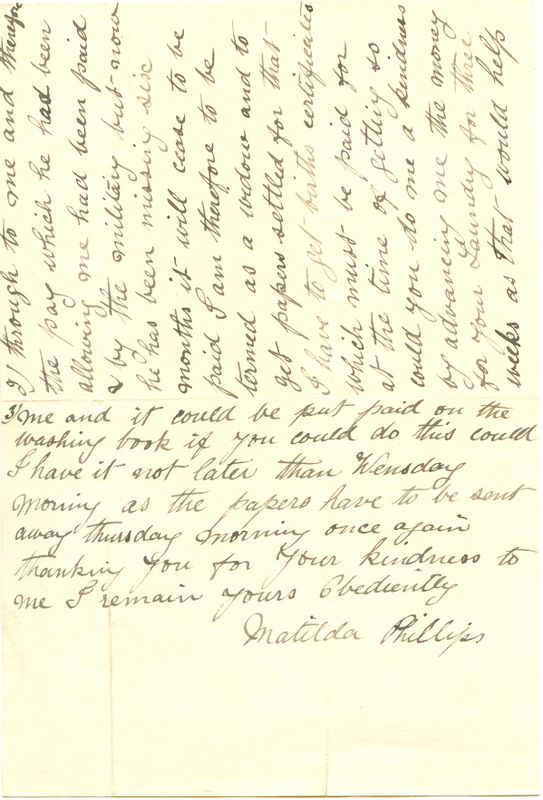 2) through to me and therefore
the pay which he had been
allowing me had been paid
& by the military but now
he has been missing six
months it will cease to be
paid I am therefore to be
termed as a widow and to
get papers settled for that
I have to get births certificates
which must be paid for
at the time of getting so
could you do me a kindness
by advancing me the money
for your Laundry for three
weeks as that would help
3) me and it could be put paid on the
washing book if you could do this could
I have it not later than Wensday
morning as the papers have to be sent
away thursday morning once again
thanking you for your kindness to
me I remain yours Obediently
Matilda Phillips